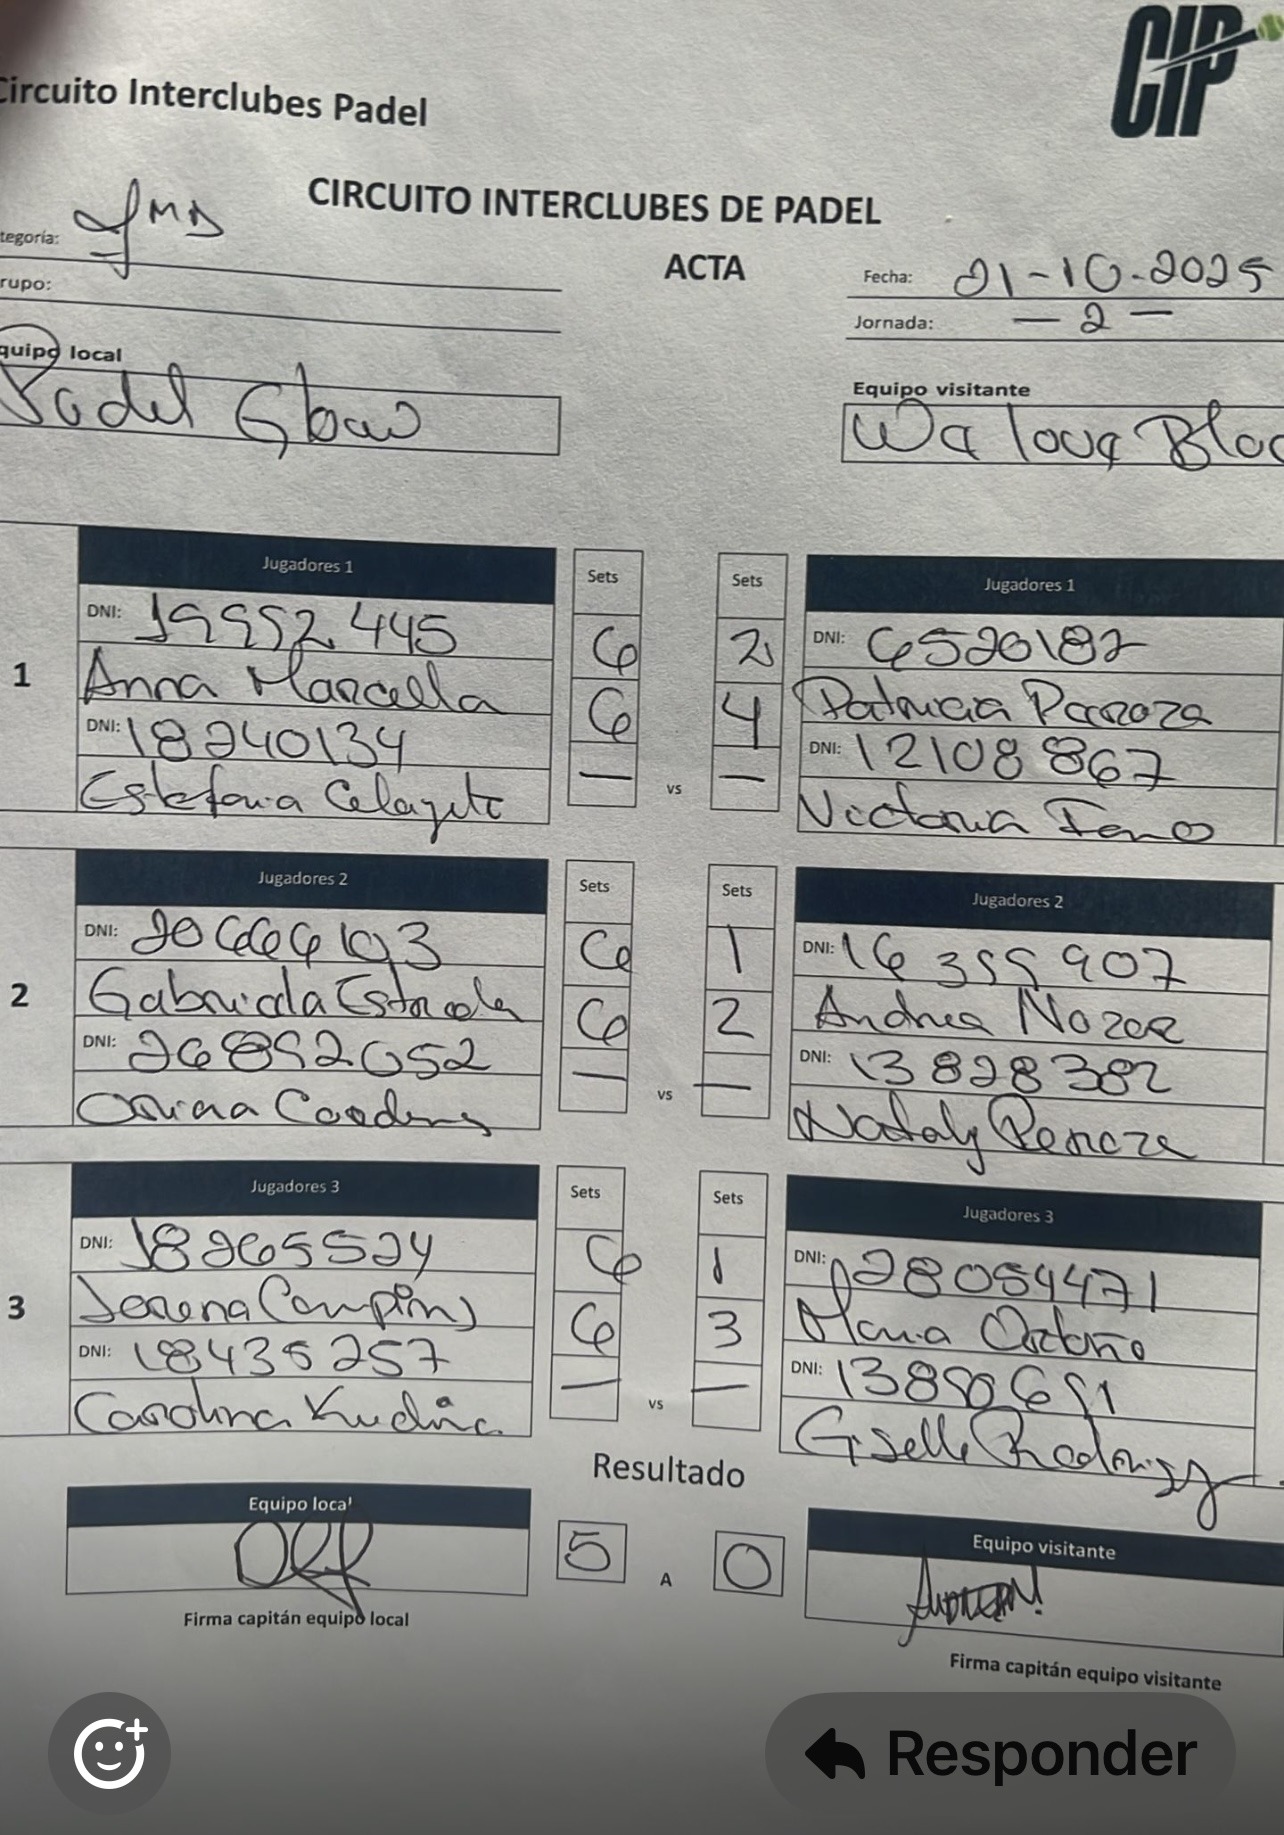 CIP
Circuito Interclubes Padel
CIRCUITO INTERCLUBES DE PADEL
ACTA
tegoría:
Fecha: 21-10-2025
rupo:
Jornada: - 2 -
quipo local
Equipo visitante
Padel
Waloua Bloc
Jugadores 1 Sets Sets Jugadores 1
1
DNI: 19952445 6 2 DNI: 6520182
Anna Marcella 6 4 Patricia
DNI: 18240134 — — DNI: 12108867
Estefania vs Victoria
Jugadores 2 Sets Sets Jugadores 2
2
DNI: 6 1 DNI: 16355907
Gabriela Estrada 6 2 Andrea
DNI: 26892052 — — DNI: 13828382
vs Nataly
Jugadores 3 Sets Sets Jugadores 3
3
DNI: 18265524 6 1 DNI: 28054471
6 3 Maria
DNI: 18435257 — — DNI:
Carolina vs Giselle Rodriguez
Resultado
Equipo local Equipo visitante
5 A 0
Firma capitán equipo local
Firma capitán equipo visitante
Responder